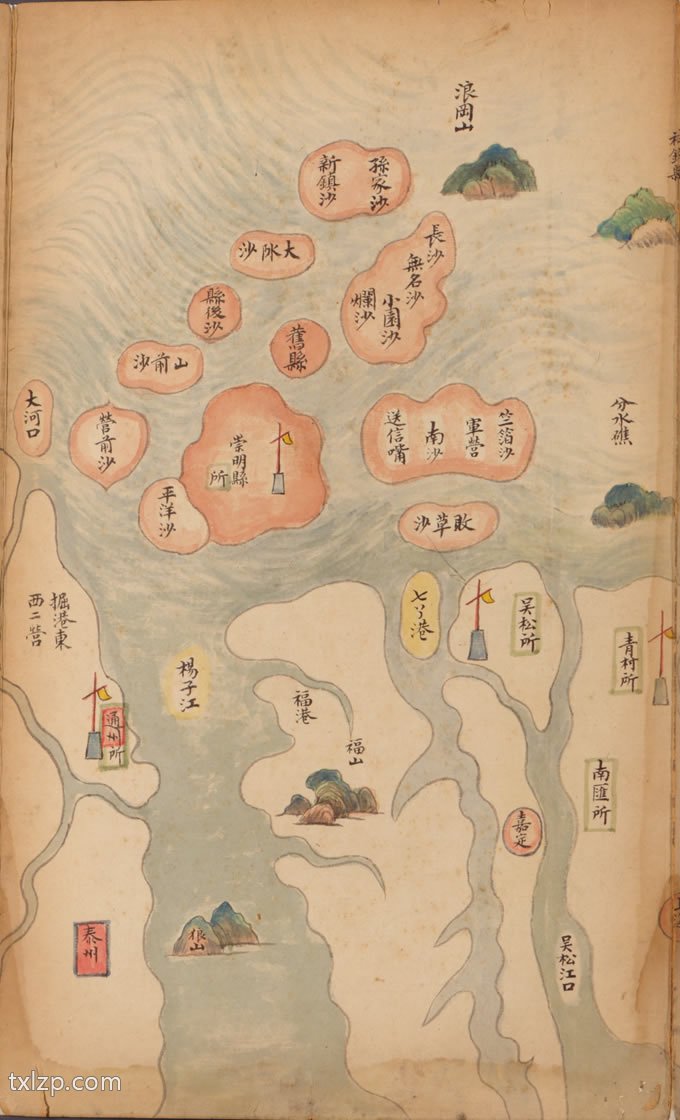 浪岡山
孫家沙
新鎮沙
長沙
無名沙
小園沙
爛沙
大𣲖沙
縣後沙
舊縣
山前沙
大河口
營前沙
崇明縣
所
平洋沙
竺箔沙
軍營
南沙
送信嘴
分水礁
敗草沙
七丫港
吴松所
青村所
掘港東
西二營
楊子江
福港
福山
通州所
南匯所
嘉定
狼山
泰州
吴松江口
txlzp.com